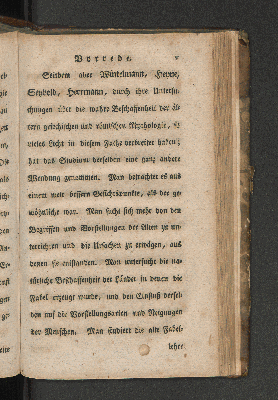 Vorrede. v
Seitdem aber Winkelmann, Heyne,
Seybold, Herrmann, durch ihre Untersu-
chungen über die wahre Beschaffenheit der äl-
tern griechischen und römischen Mythologie, so
vieles Licht in diesem Fache verbreitet haben;
hat das Studium derselben eine ganz andere
Wendung genommen. Man betrachtet es aus
einem weit bessern Gesichtspunkte, als der ge-
wöhnliche war. Man sucht sich mehr von den
Begriffen und Vorstellungen der Alten zu un-
terrichten und die Ursachen zu erwägen, aus
denen sie entstanden. Man untersucht die na-
türliche Beschaffenheit der Länder in denen die
Fabel erzeugt wurde, und den Einfluß dersel-
ben auf die Vorstellungsarten und Neigungen
der Menschen. Man studiert die alte Fabel-
lehre